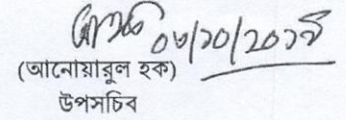 ০৮/১০/২০১৭
(আনোয়ারুল হক)
উপসচিব